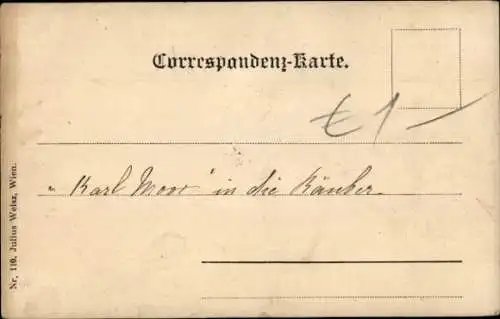 Correspondenz-Karte.
€ 1 –
„Karl Moor" in die Räuber.
Nr. 110. Julius Weisz, Wien.